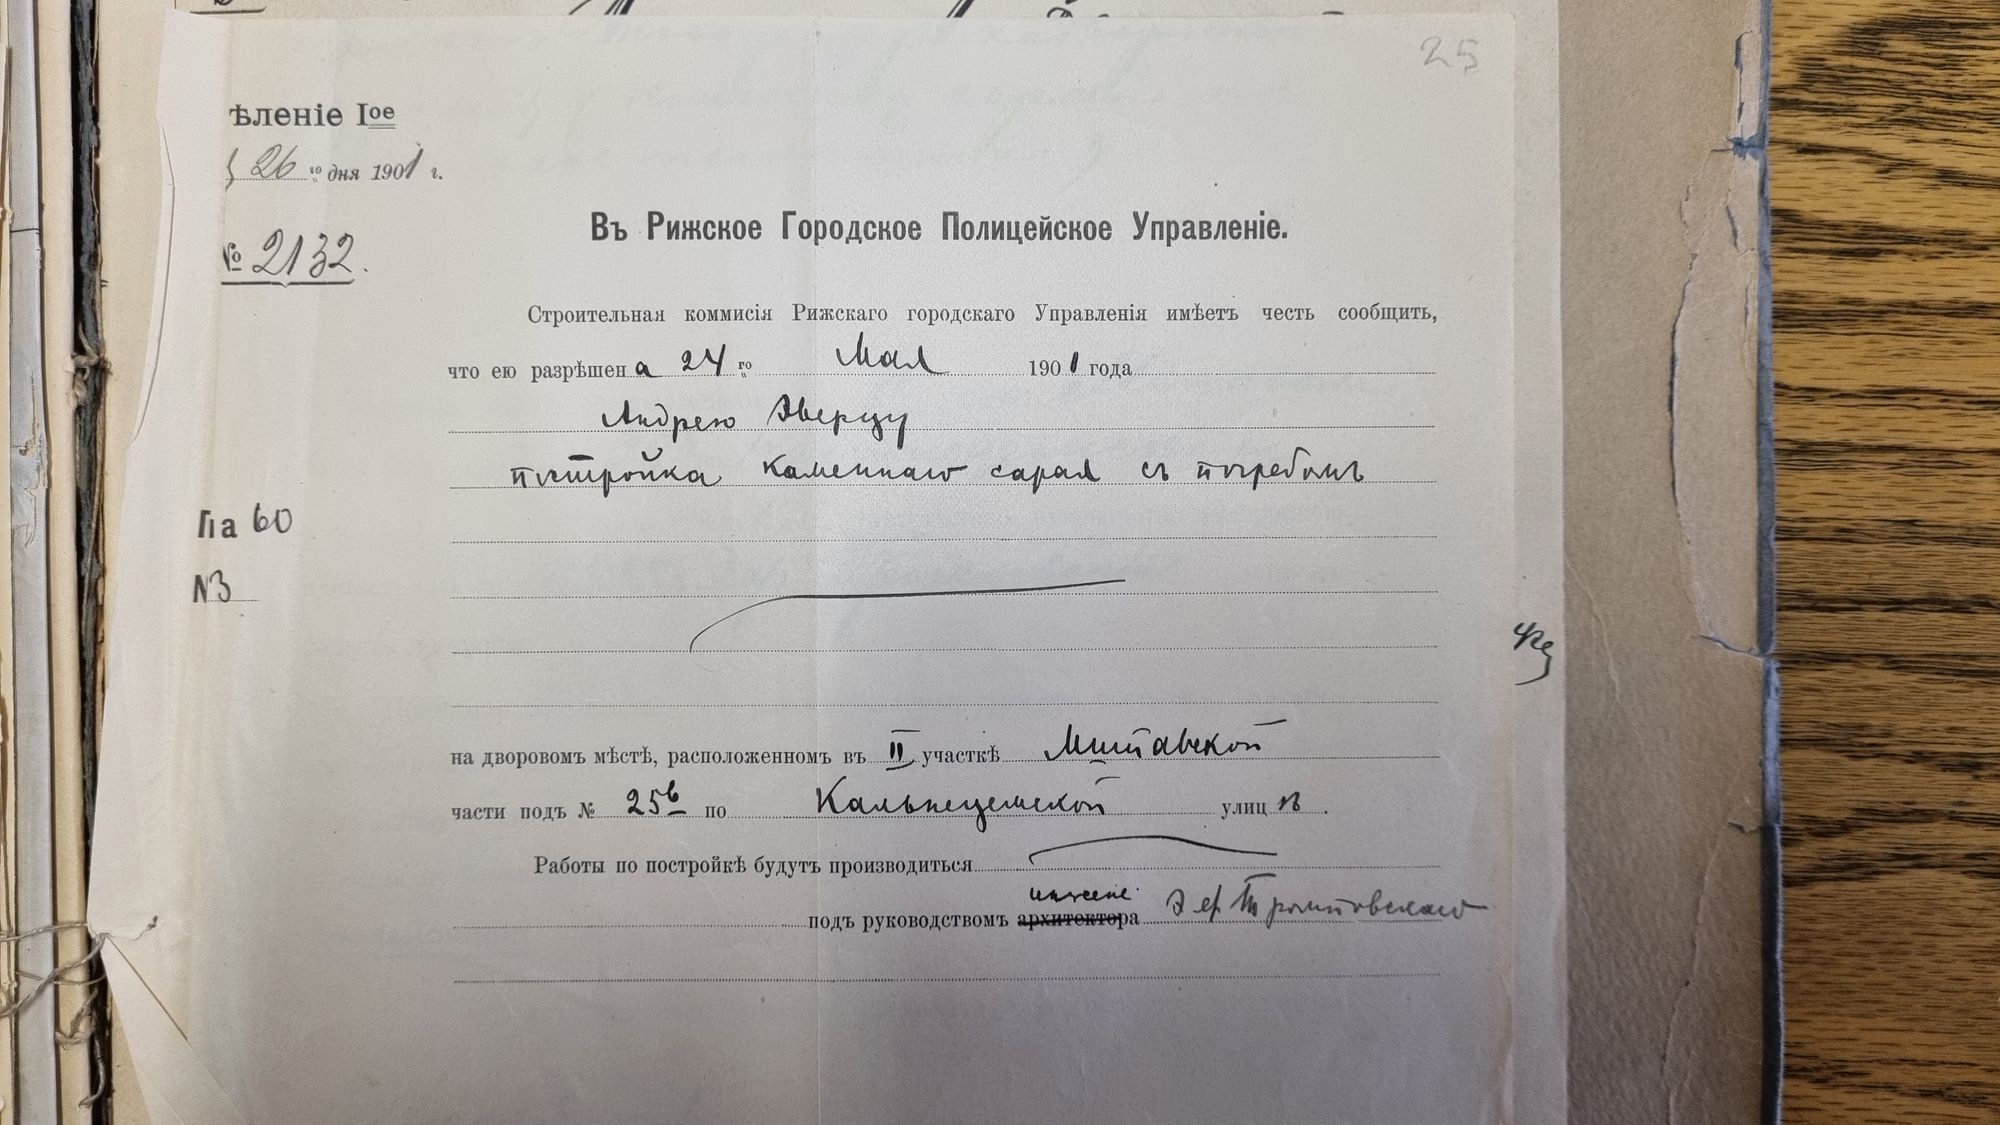 25
ѣленіе Iое
26 го дня 1901 г.
№ 2132.
Въ Рижское Городское Полицейское Управленіе.
Строительная коммисія Рижскаго городскаго Управленія имѣетъ честь сообщить,
что ею разрѣшена 24 го Мая 1901 года
Андрею Эверцу
постройка каменнаго сарая съ погребомъ
па 60
N3
на дворовомъ мѣстѣ, расположенномъ въ II участкѣ Митавской
части подъ № 25б по Кальнецемской улицѣ.
Работы по постройкѣ будутъ производиться
подъ руководствомъ архитектора